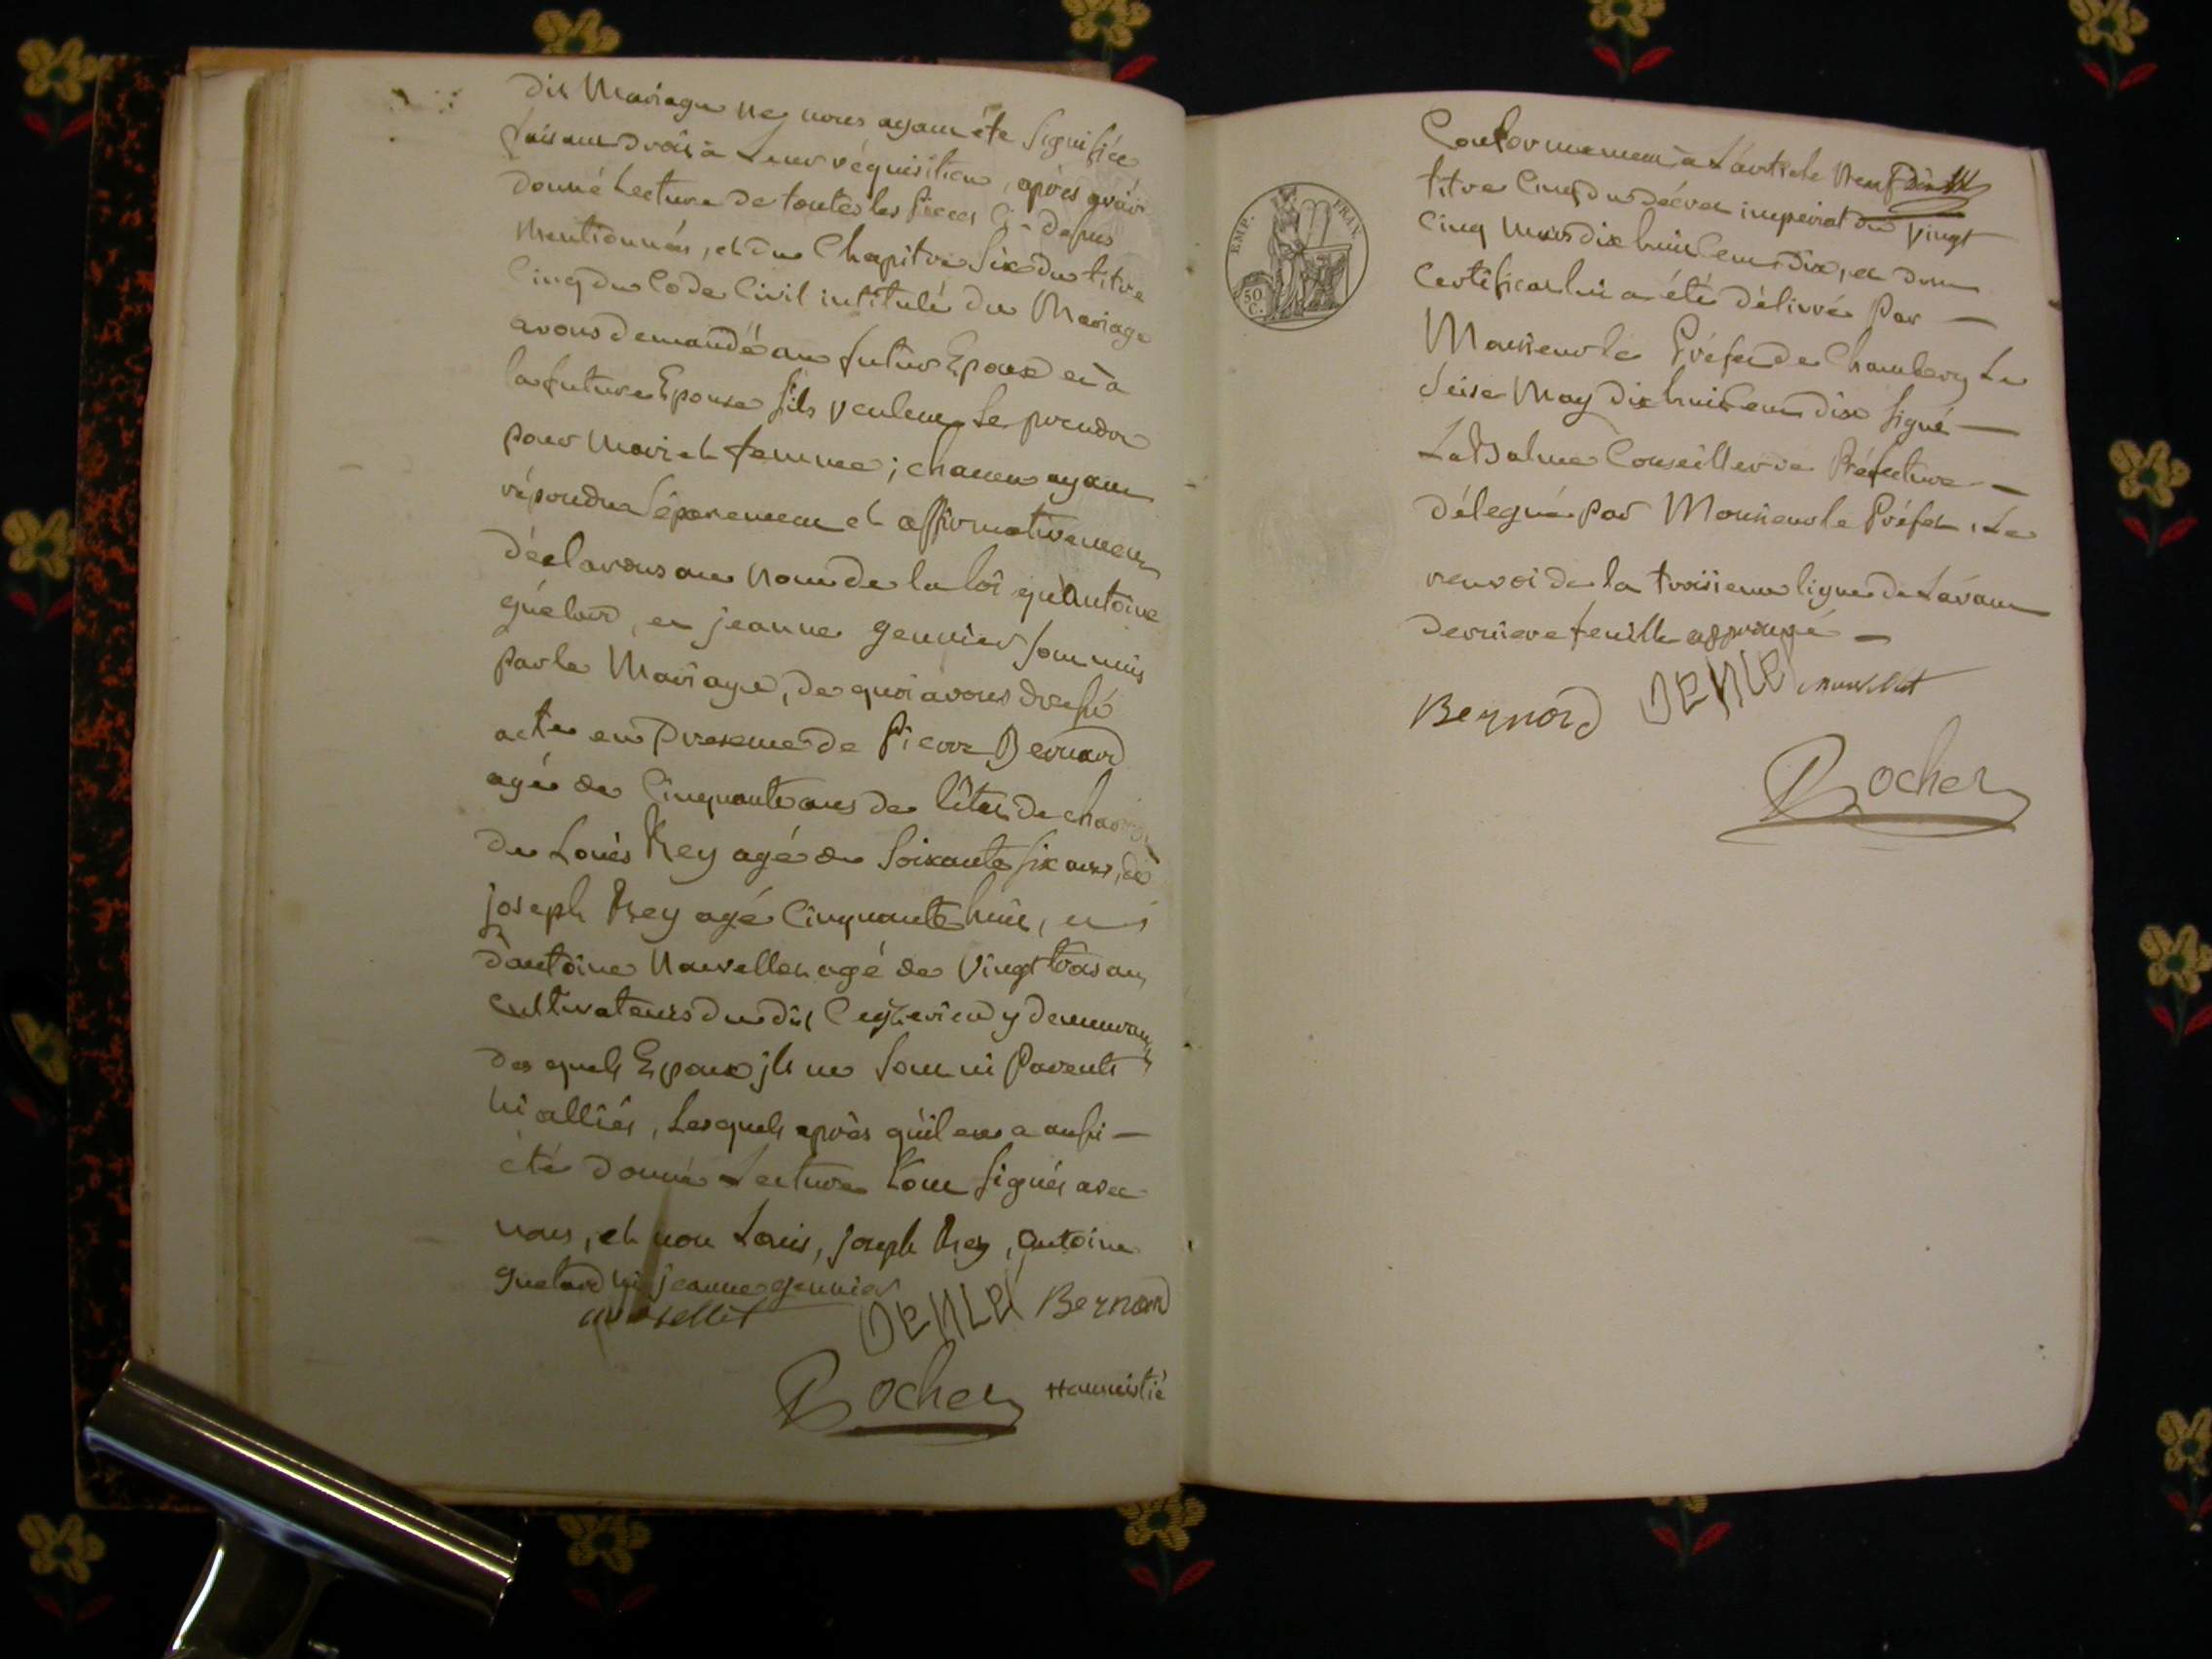 dit Mariage ne nous ayant été Signifiée
faisant droit à Leur réquisition, après avoir
donné Lecture de toutes les pieces Ci-dessus
Mentionnées, et du Chapitre Six du titre
Cinq du Code Civil intitulé du Mariage
avons demandé au futur Epoux et à
la future Epouse s'ils veulent se prendre
pour Mari et femme ; chacun ayant
répondu Séparement et affirmativement
déclarons au Nom de la loi qu'Antoine
guélard, et jeanne gennier sont unis
par le Mariage, de quoi avons dressé
acte en Presence de Pierre Bernard
agé de Cinquante ans de l'état de
de Loüis Rey agé de Soixante six ans, de
joseph Rey agé Cinquante huit, et
d'antoine Nouvellet agé de Vingt trois ans
Cultivateurs du dit y demeurants
des quels Epoux ils ne sont ni Parents
ni alliés, Lesquels après qu'il en a aussi —
été donné Lecture l'ont signés avec
nous, et non Louis, joseph Rey, Antoine
guelard ni jeanne gennier
Bernard
Rocher
EMP. FRAN.
50 C.
Conformement à L'article Neuf
titre Cinq du décret imperial du Vingt
Cinq Mars dix huit cent dix, et dont
Certificat lui a été délivré Par —
Monsieur le Préfet de Chambery Le
Seise May dix huit cent dix signé —
La Balme Conseiller de Préfecture —
délegué par Monsieur le Préfet, Le
renvoi de la troisieme ligne de L'avant
derniere feuille approuvé —
Bernord nouvellet
Rocher